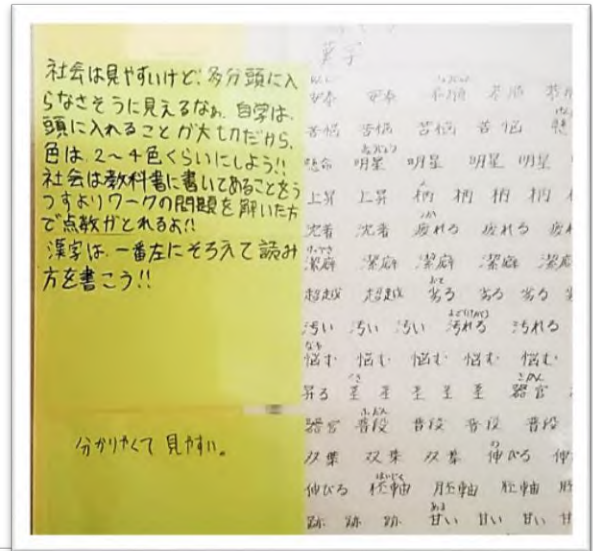 社会は見やすいけど、多分頭に入
らなさそうに見えるなぁ。自学は、
頭に入れることが大切だから、
色は、2〜4色くらいにしよう!!
社会は教科書に書いてあることをう
つすよりワークの問題を解いた方
で点数がとれるよ!!
漢字は、一番左にそろえて読み
方を書こう!!
分かりやくて見やすい。
漢字
苦悩 苦悩 苦悩 苦悩 懸
懸命 明星 明星 明星 明星
上昇 上昇 柄 柄 柄 柄
沈着 沈着 疲れる 疲れる 疲れ
潔癖 潔癖 潔癖 潔癖 潔癖
超越 超越 劣る 劣る 劣る
汚い 汚い 汚い 汚れる 汚れる
悩む 悩む 悩む 悩む 悩む
器官 普段 普段 普段 普段
双葉 双葉 双葉 伸びる 伸
伸びる 胚軸 胚軸 胚軸
跡 跡 跡 甘い 甘い 甘い